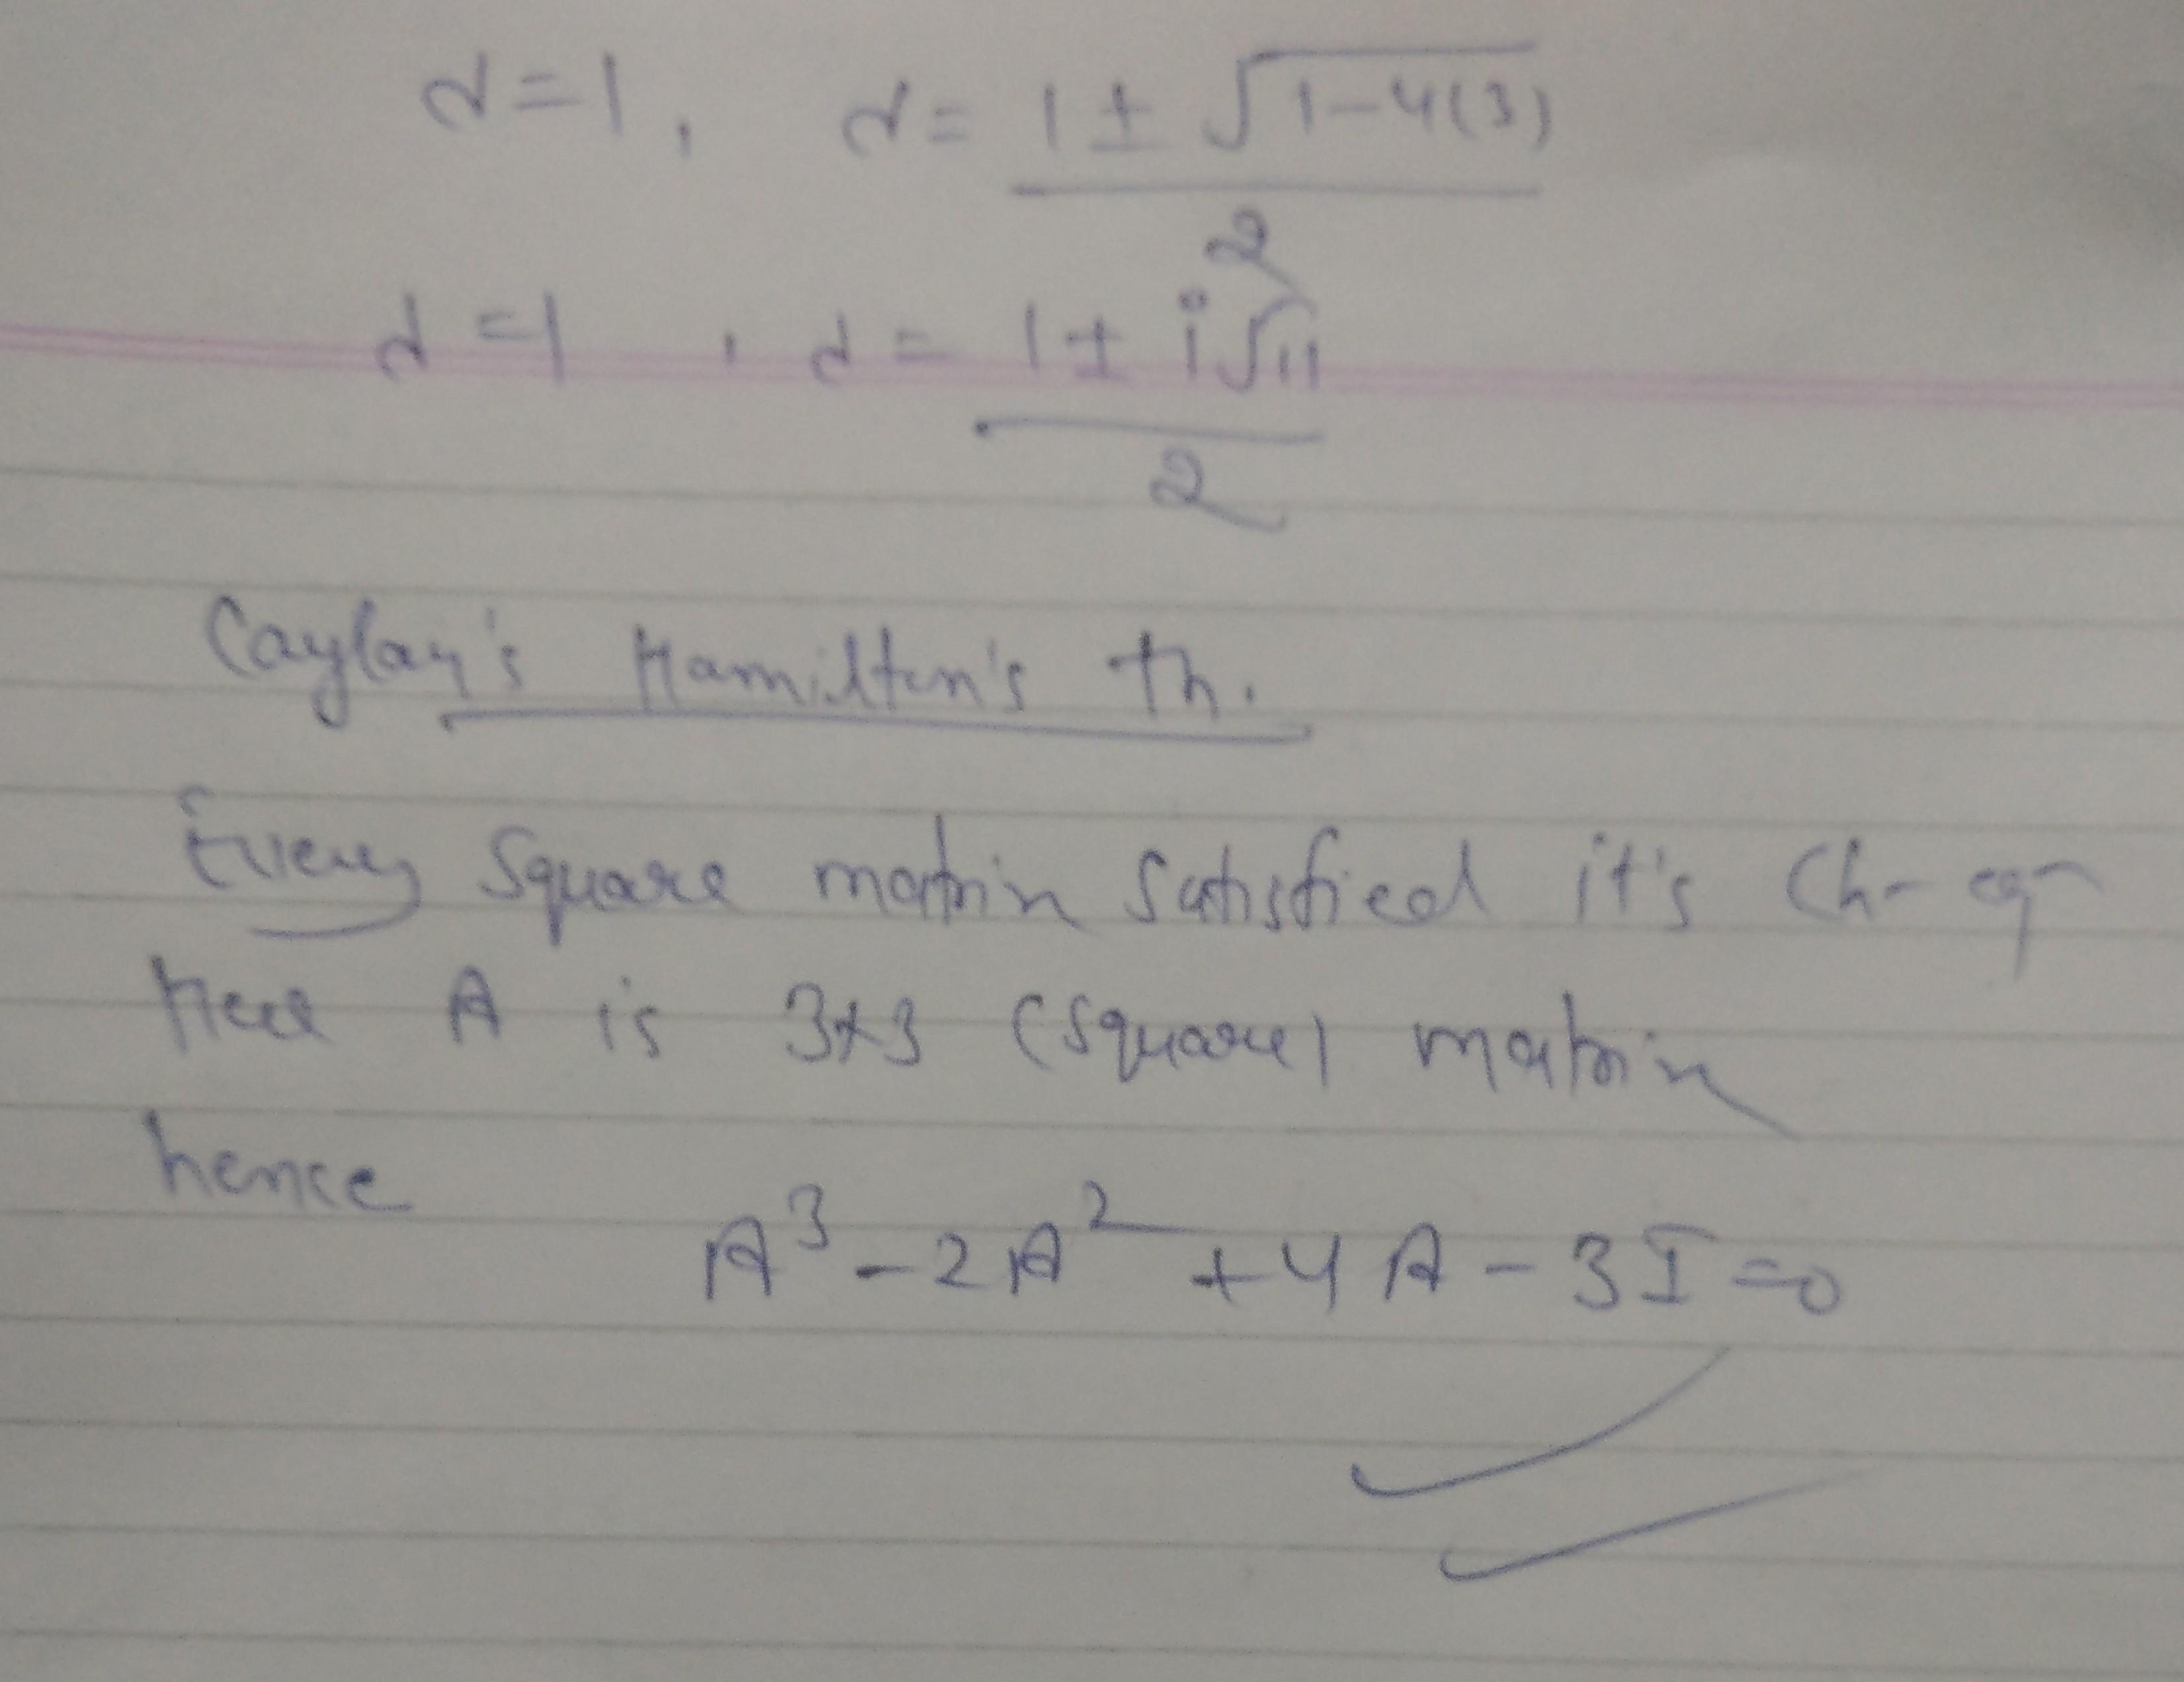 λ=1, λ= 1 ± √1-4(3)
2
λ=1 , λ= 1 ± i√11
2
Caylay's Hamilton's th.
Every Square matrix Satisfied it's Ch- eqn
Here A is 3×3 (square) matrix
hence
A³ - 2A² + 4A - 3I = 0